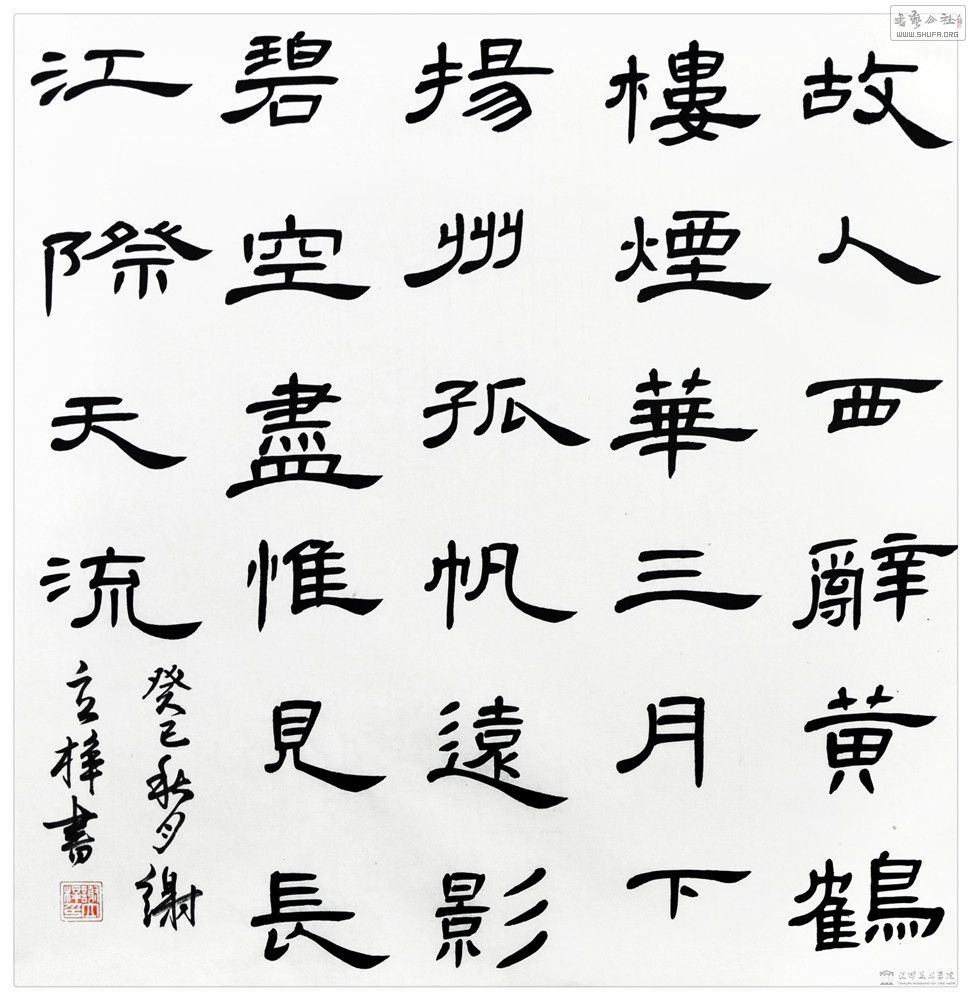 故人西辭黄鶴
樓煙華三月下
揚州孤帆遠影
碧空盡惟見長
江際天流
癸巳秋月謝
書
書藝公社
WWW.SHUFA.ORG